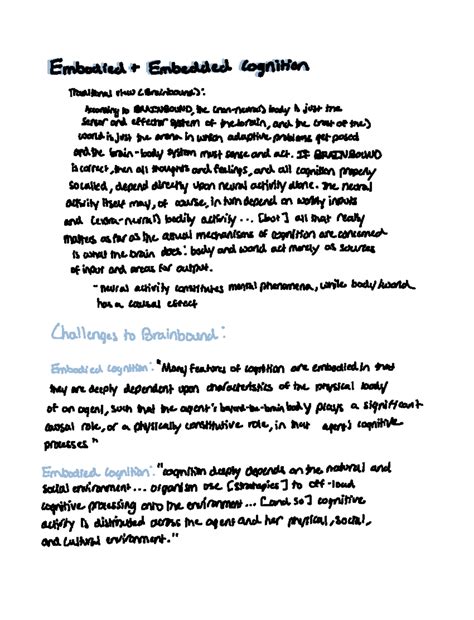 Embodied + Embedded Cognition
Traditional View (Brainbound):
According to BRAINBOUND, the (non-neural) body is just the
sensor and effector system of the brain, and the (rest of the)
world is just the arena in which adaptive problems get posed
and the brain-body system must sense and act. If BRAINBOUND
is correct, then all thoughts and feelings, and all cognition properly
so called, depend directly upon neural activity alone. The neural
activity itself may, of course, in turn depend on worldly inputs
and (extra-neural) bodily activity... [but] all that really
matters as far as the actual mechanisms of cognition are concerned
is what the brain does: body and world act merely as sources
of input and areas for output.
- neural activity constitutes mental phenomena, while body/world
has a causal effect
Challenges to Brainbound:
Embodied cognition: "Many features of cognition are embodied in that
they are deeply dependent upon characteristics of the physical body
of an agent, such that the agent's beyond-the-brain body plays a significant
causal role, or a physically constitutive role, in that agent's cognitive
processes"
Embodied Cognition: "cognition deeply depends on the natural and
social environment... organism use [strategies] to off-load
cognitive processing onto the environment... [and so] cognitive
activity is distributed across the agent and her physical, social,
and cultural environment."